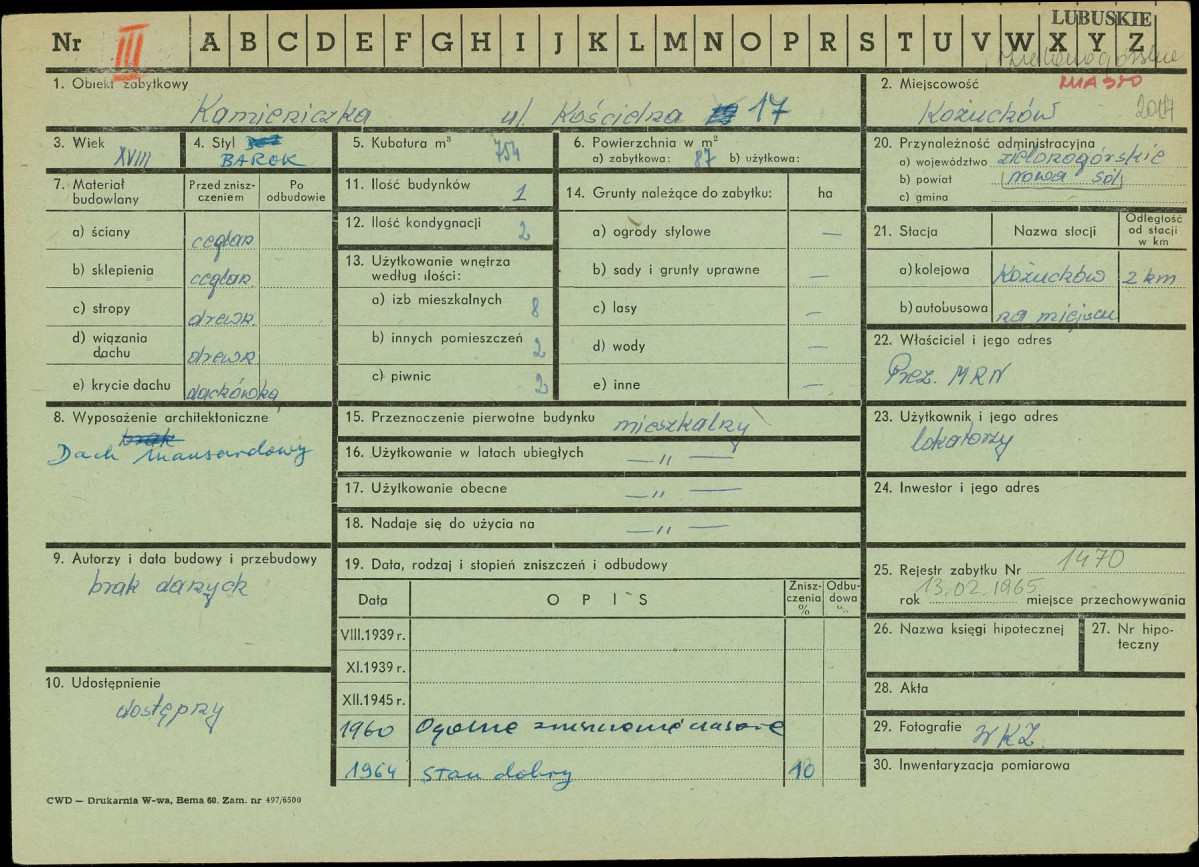 LUBUSKIE
Nr III A B C D E F G H I J K L M N O P R S T U V W X Y Z
zielonogórskie
1. Obiekt zabytkowy
Kamieniczka ul. Kościelna 17
2. Miejscowość MIASTO
Kożuchów 2017
3. Wiek
XVIII
4. Styl
BAROK
5. Kubatura m³ 754
6. Powierzchnia w m²
a) zabytkowa: 87 b) użytkowa:
20. Przynależność administracyjna
a) województwo zielonogórskie
b) powiat Nowa Sól
c) gmina
7. Materiał budowlany
Przed zniszczeniem
Po odbudowie
a) ściany ceglan.
b) sklepienia ceglan.
c) stropy drewn.
d) wiązania dachu drewn.
e) krycie dachu dachówką
11. Ilość budynków 1
12. Ilość kondygnacji 2
13. Użytkowanie wnętrza według ilości:
a) izb mieszkalnych 8
b) innych pomieszczeń 2
c) piwnic 2
14. Grunty należące do zabytku: ha
a) ogrody stylowe —
b) sady i grunty uprawne —
c) lasy —
d) wody —
e) inne —
21. Stacja
Nazwa stacji
Odległość od stacji w km
a) kolejowa Kożuchów 2 km
b) autobusowa na miejscu
22. Właściciel i jego adres
Prez. MRN
8. Wyposażenie architektoniczne
brak
Dach mansardowy
15. Przeznaczenie pierwotne budynku mieszkalny
16. Użytkowanie w latach ubiegłych — „ —
17. Użytkowanie obecne — „ —
18. Nadaje się do użycia na — „ —
23. Użytkownik i jego adres
lokatorzy
24. Inwestor i jego adres
9. Autorzy i data budowy i przebudowy
brak danych
19. Data, rodzaj i stopień zniszczeń i odbudowy
Data
OPIS
Zniszczenia %
Odbudowa %
VIII.1939 r.
XI.1939 r.
XII.1945 r.
1960 Ogólne zniszczenie czasowe
1964 stan dobry 10
25. Rejestr zabytku Nr 1470
rok 13.02.1965 miejsce przechowywania
26. Nazwa księgi hipotecznej
27. Nr hipoteczny
10. Udostępnienie
dostępny
28. Akta
29. Fotografie WKZ.
30. Inwentaryzacja pomiarowa
CWD — Drukarnia W-wa, Bema 60. Zam. nr 497/6500